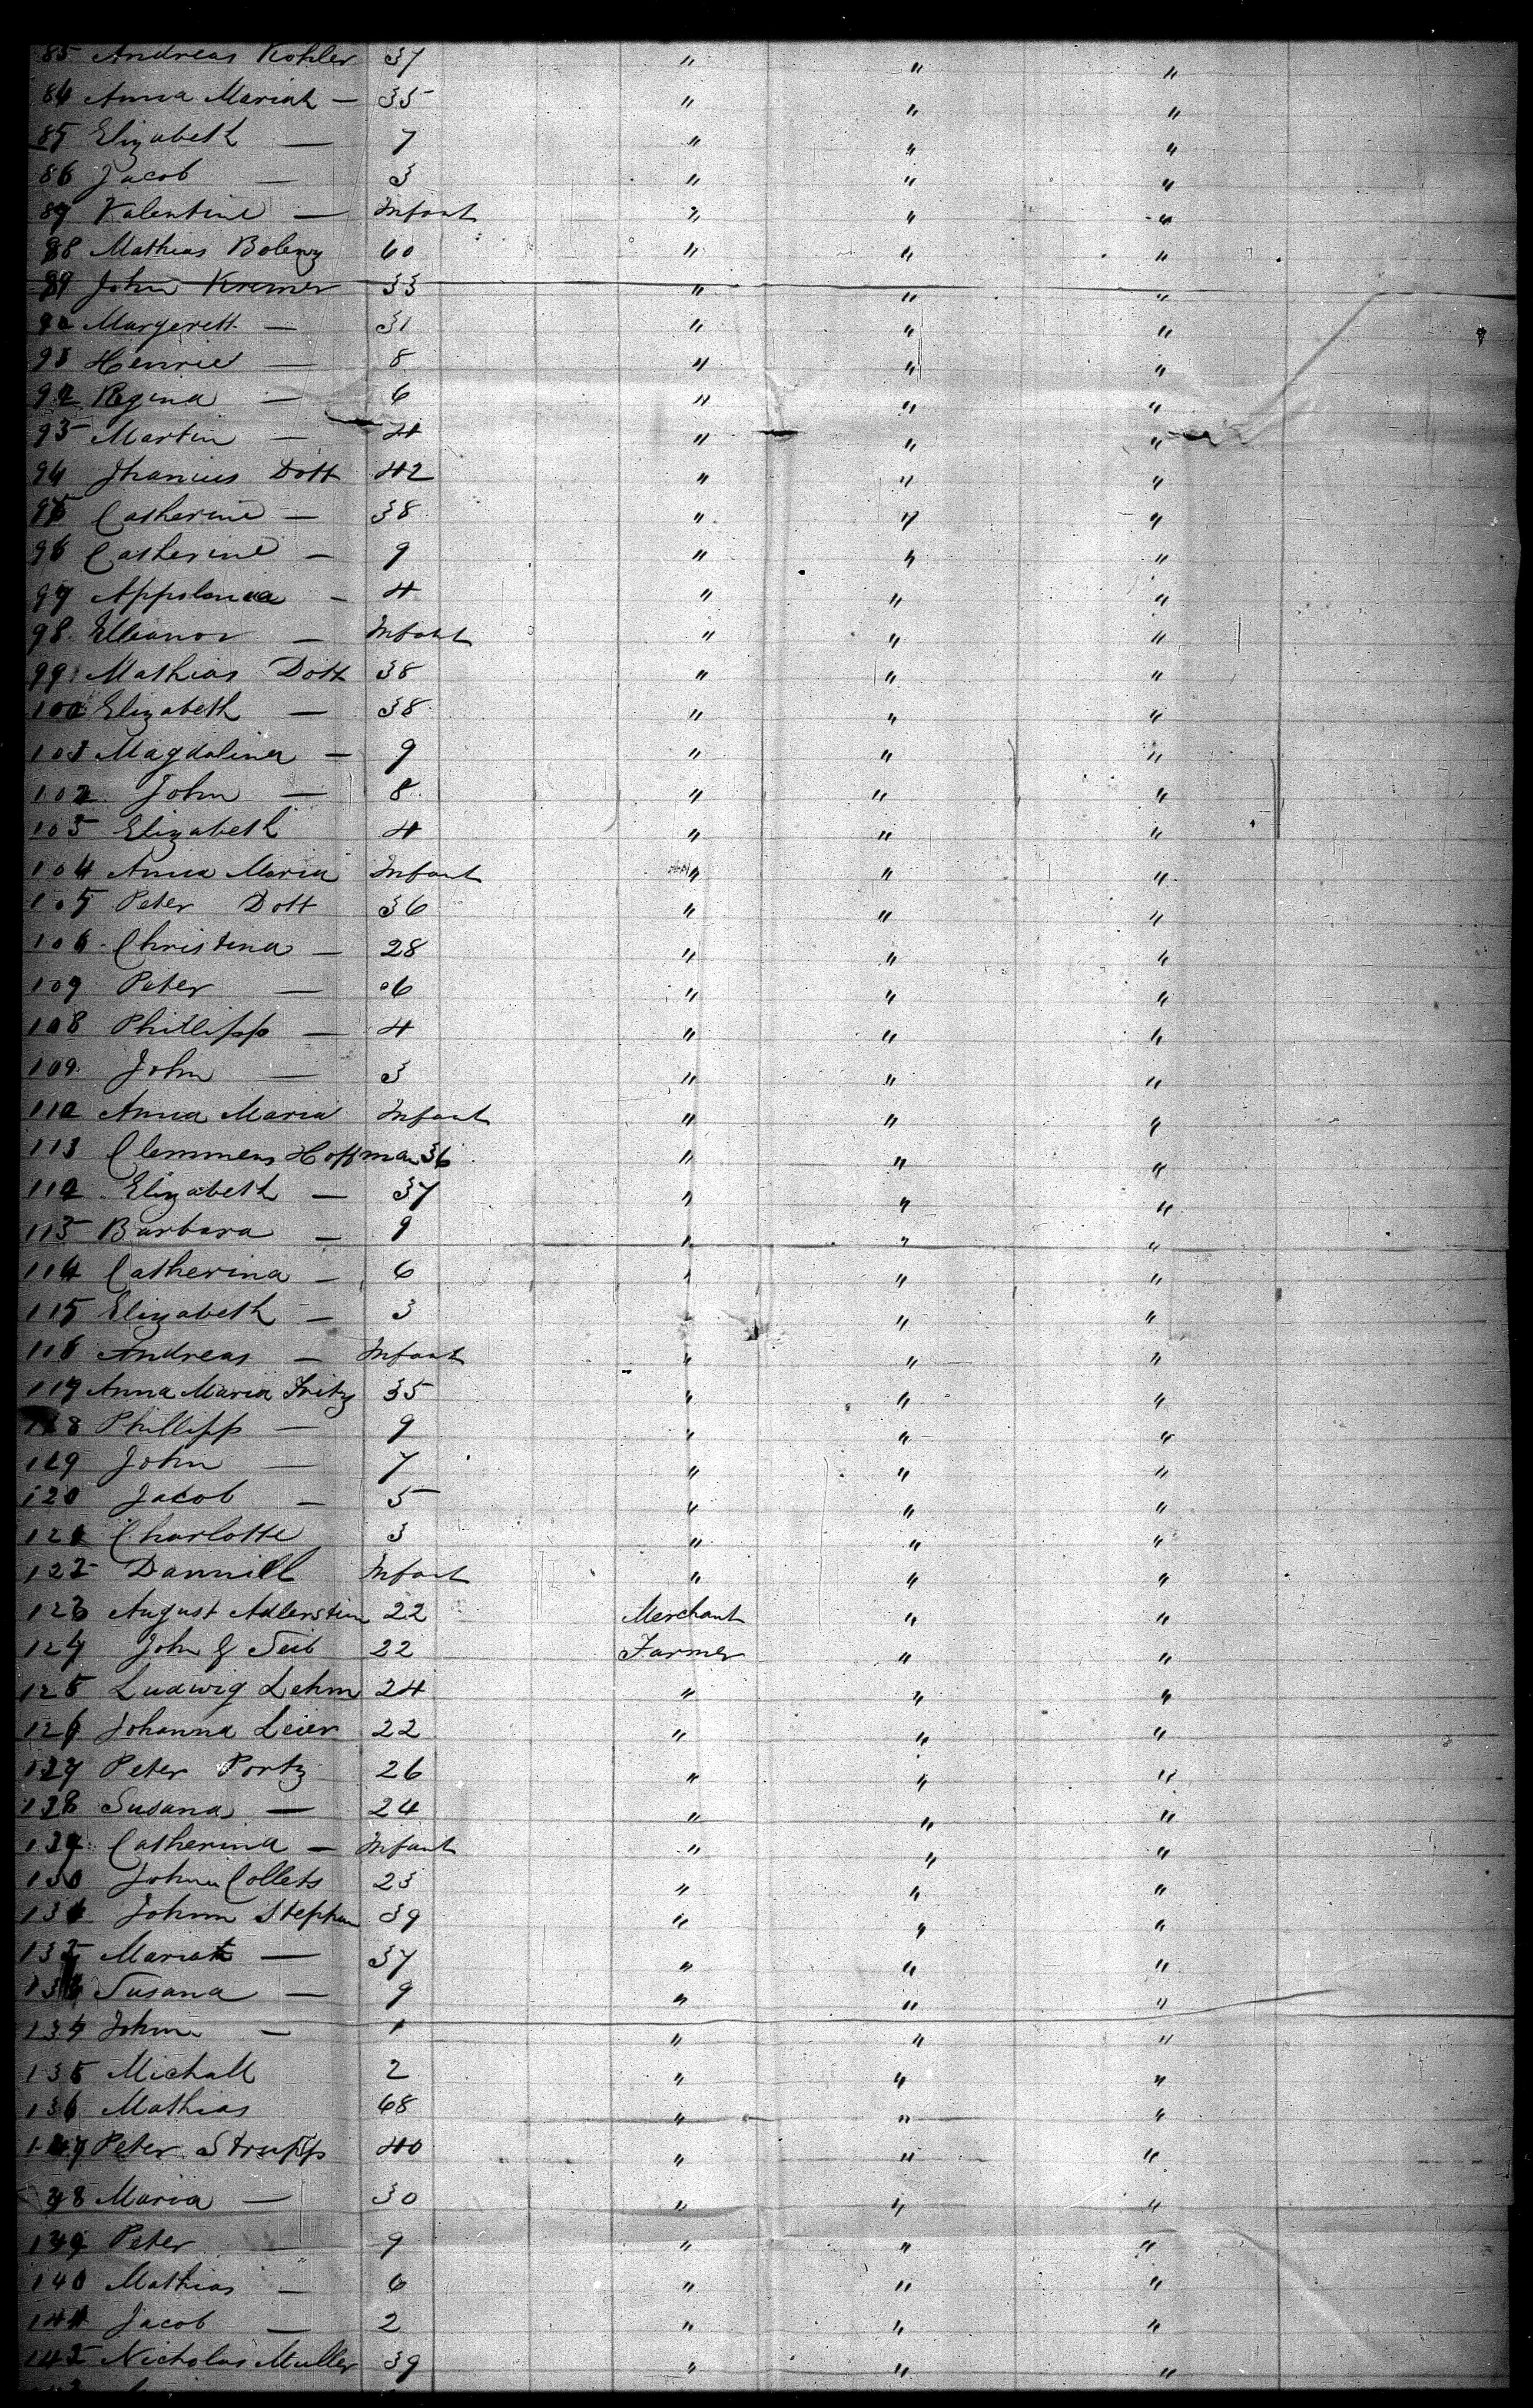 85 Andreas Kohler 37 " " "
84 Anna Mariah — 35 " " "
85 Elizabeth — 7 " " "
86 Jacob — 3 " " "
87 Valentine — Infant " " "
88 Mathias Boleny 60 " " "
89 John Kremer 33 " " "
90 Margerett — 31 " " "
91 Henrie — 8 " " "
92 Regina — 6 " " "
93 Martin — 4 " " "
94 Dott 42 " " "
95 Catherine — 38 " " "
96 Catherine — 9 " " "
97 Appolonia — 4 " " "
98 Elleanor — Infant " " "
99 Mathias Dott 38 " " "
100 Elizabeth — 38 " " "
101 Magdalina — 9 " " "
102 John — 8 " " "
103 Elizabeth 4 " " "
104 Anna Maria Infant " " "
105 Peter Dott 36 " " "
106 Christina — 28 " " "
107 Peter — 6 " " "
108 Phillipp — 4 " " "
109 John — 3 " " "
110 Anna Maria Infant " " "
111 Clemmens Hoffman 36 " " "
112 Elizabeth — 37 " " "
113 Barbara — 9 " " "
114 Catherina — 6 " " "
115 Elizabeth — 3 " " "
116 Andreas — Infant " " "
117 Anna Maria Fritz 35 " " "
118 Phillipp — 9 " " "
119 John — 7 " " "
120 Jacob — 5 " " "
121 Charlotte 3 " " "
122 Daniell Infant " " "
123 August Adlerstein 22 Merchant " "
124 John & Seib 22 Farmer " "
125 Ludwig Lehm 24 " " "
126 Johanna Leier 22 " " "
127 Peter Portz 26 " " "
128 Susana — 24 " " "
129 Catherina — Infant " " "
130 John Collets 23 " " "
131 Johnn Stephan 39 " " "
132 Mariah — 37 " " "
133 Susana — 9 " " "
134 John — 1 " " "
135 Michall 2 " " "
136 Mathias 68 " " "
137 Peter Strupp 40 " " "
38 Maria — 30 " " "
139 Peter — 9 " " "
140 Mathias — 6 " " "
141 Jacob — 2 " " "
142 Nicholas Muller 39 " " "